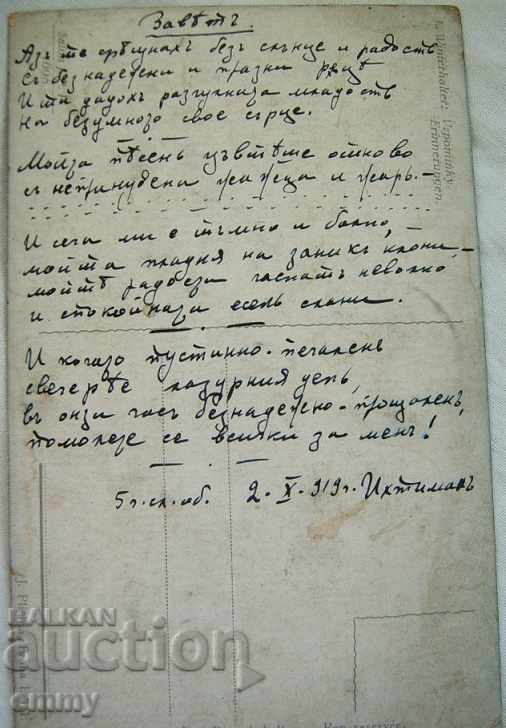 Завѣтъ.
Азъ те срѣщнахъ безъ слънце и радость
Съ безнадеждни и празни рѫцѣ
И ти дадохъ разлуклива младость
На безумното свое сърце.
Мойта пѣсень цъвтѣше отново
съ непринудена жажда и жарь. –
И сега ми е тъмно и болно,
мойта пладня на заникъ клони, –
мойтѣ радости гаснатъ неволно
и спокойната есень слани.
И когато пустинно-печаленъ
свечерѣе лазурния день,
въ онзи часъ безнадеждно-прощаленъ,
помолете се всички за менъ!
5 г. ск. об. 2. X. 919 г. Ихтиманъ
Winterhalter: Vzpomínky.
Erinnerungen.
BALKAN
auction
emmy